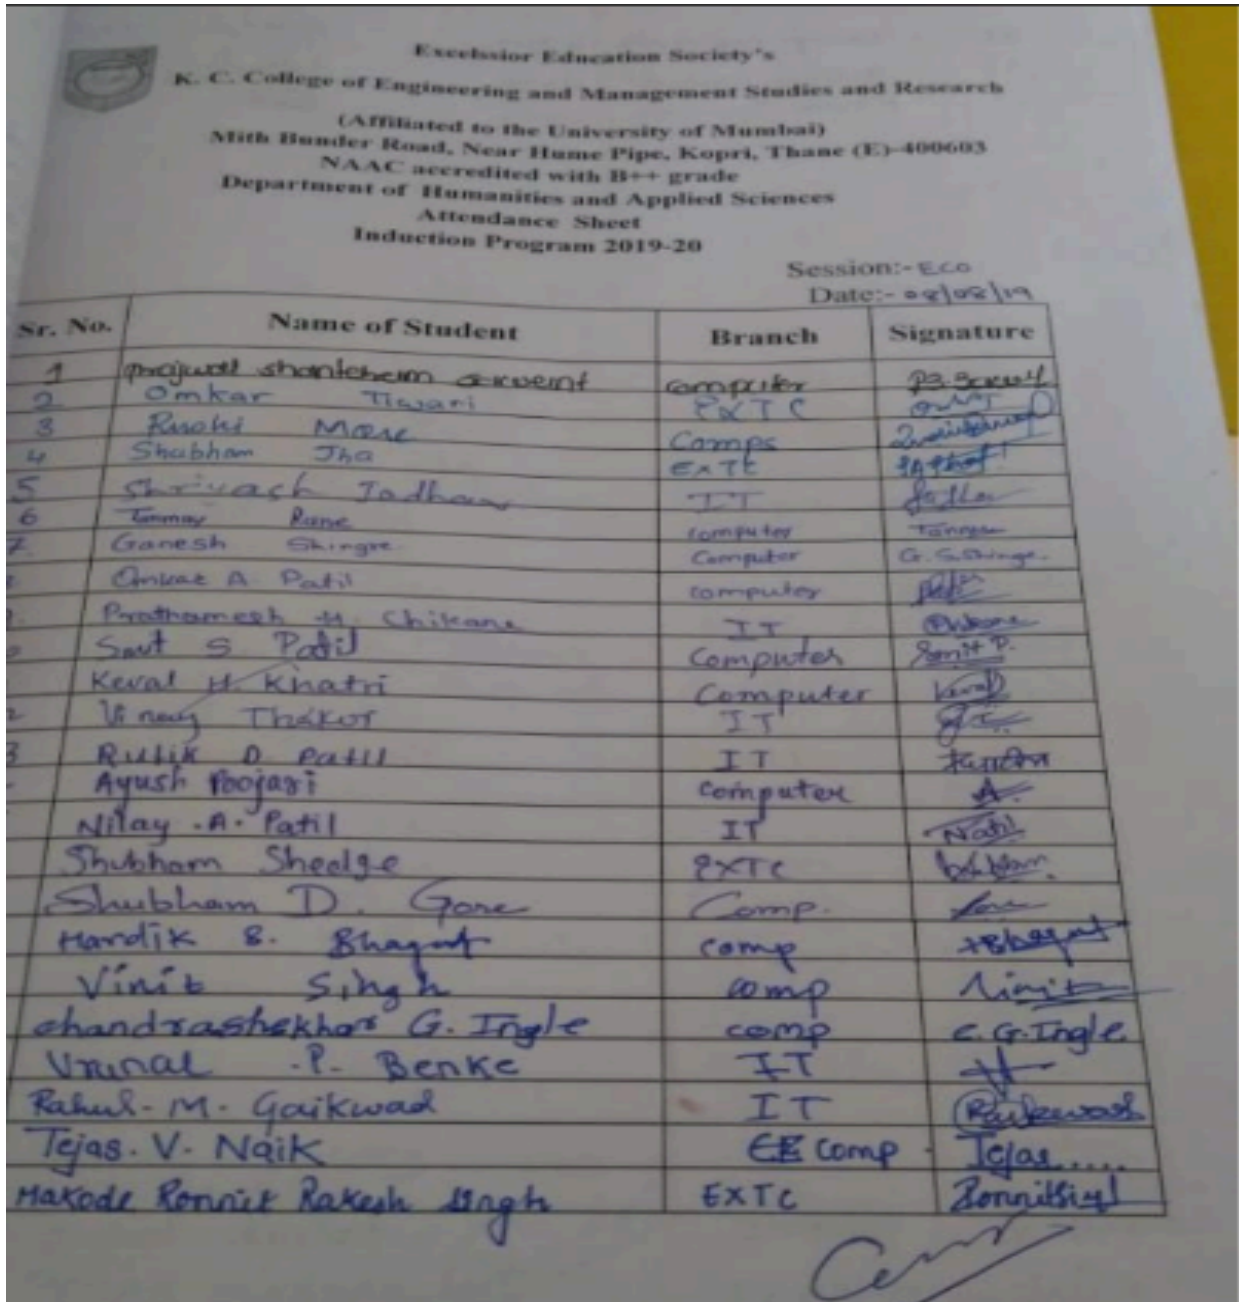 Excelssior Education Society's
K. C. College of Engineering and Management Studies and Research
(Affiliated to the University of Mumbai)
Mith Bunder Road, Near Hume Pipe, Kopri, Thane (E)-400603
NAAC accredited with B++ grade
Department of Humanities and Applied Sciences
Attendance Sheet
Induction Program 2019-20
Session:- ECO
Date:- 08/08/19
Sr. No. Name of Student Branch Signature
1 prajwal computer
2 Omkar Tiwari EXTC
3 Ruchi More Comps
4 Shubham Jha EXTC
5 Shrivash Jadhav IT
6 Tanmay Rane computer
7. Ganesh Shingre Computer G.S.Shinge.
Omkar A. Patil computer
Prathamesh M. Chikane IT
S Patil Computer Smit P.
Keval H. Khatri Computer Keval
Vinay Thakor IT
3 Rutik D. Patil IT
Ayush Poojari Computer A.
Nilay .A. Patil IT Natil
Shubham Shedge EXTC
Shubham D. Gore Comp.
Hardik S. Bhagat comp HBhagat
Vinit Singh comp Vinit
chandrashekhar G. Ingle comp C.G.Ingle
Vrunal .P. Benke IT
Rahul. M. Gaikwad IT
Tejas. V. Naik comp Tejas.....
Makode Ronnit Rakesh Singh EXTC